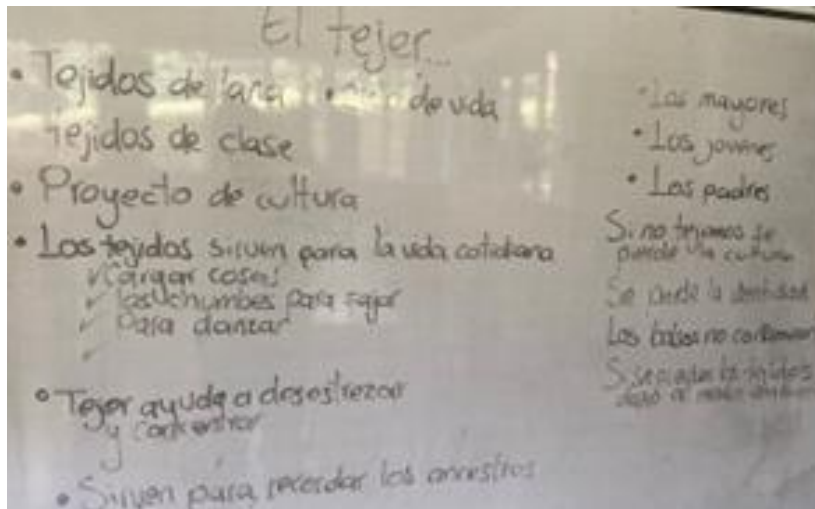 El tejer...
• Tejidos de lana • de vida
Tejidos de clase
• Proyecto de cultura
• Los tejidos sirven para la vida cotidiana
✓ Cargar cosas
✓ Las chumbes para
✓ Para danzar
✓
• Tejer ayuda a desestrezar
y concentrar
• Sirven para recordar los ancestros
• Los mayores
• Los jovenes
• Los padres
Si no tejemos se
pierde la cultura
Se pierde la identidad
Los no
los tejidos